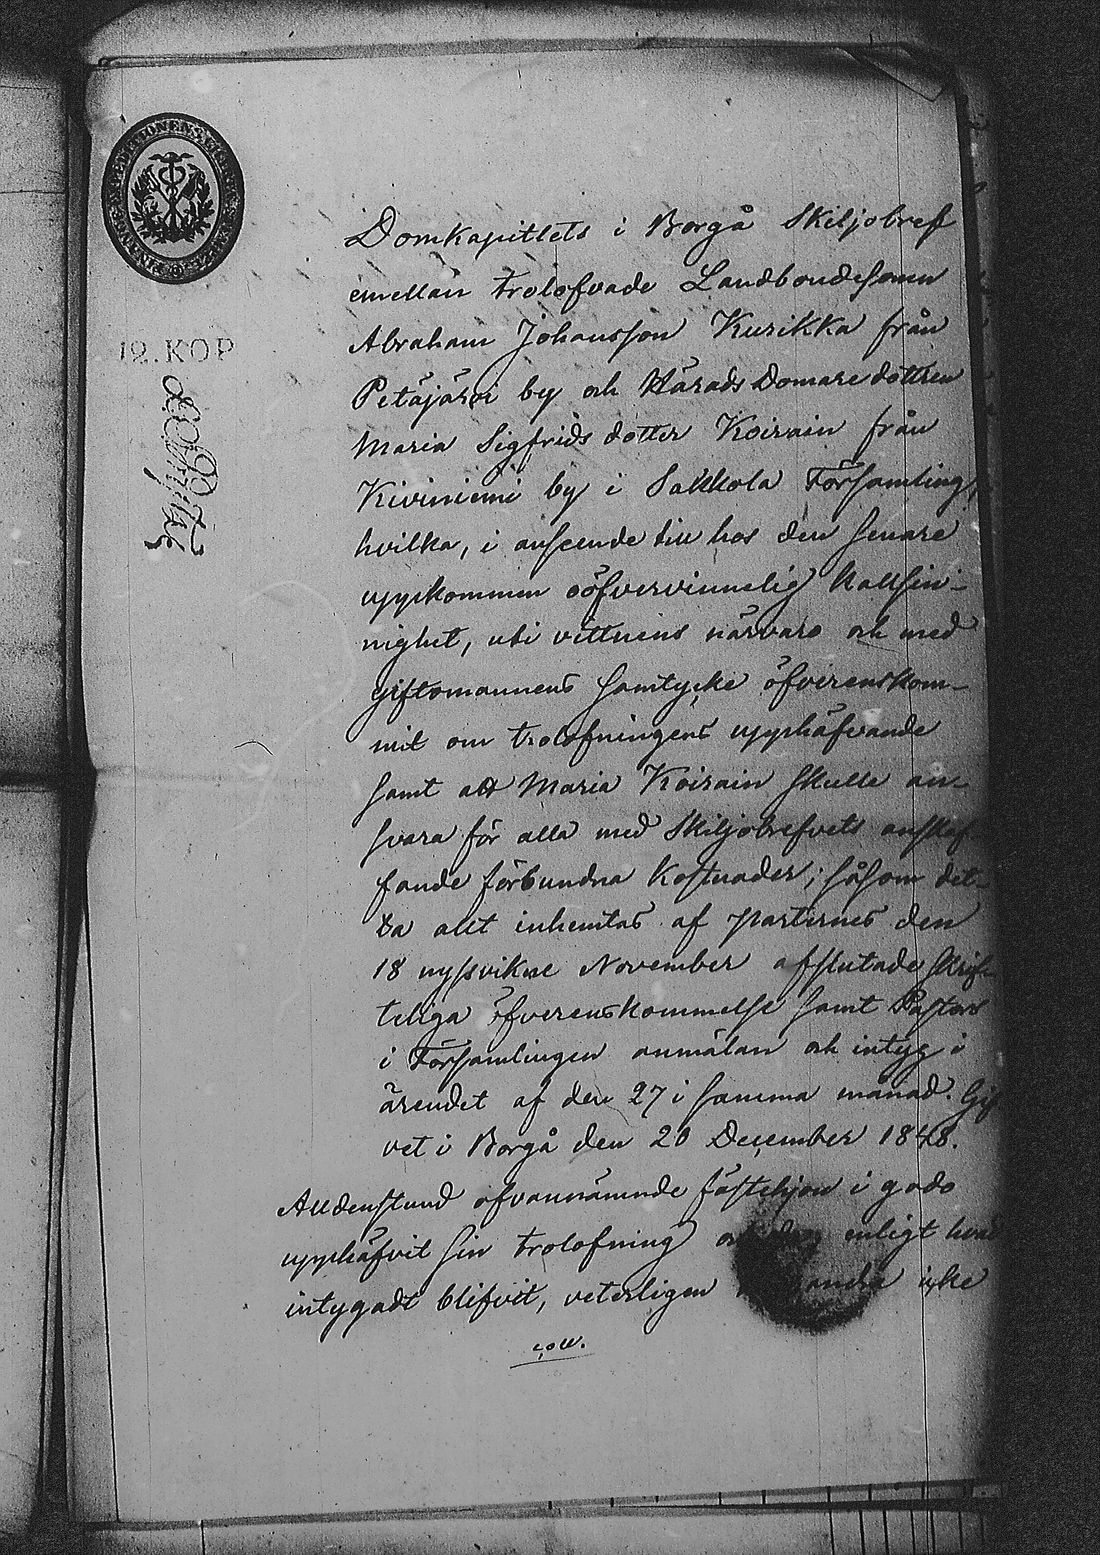 12. KOP
Domkapitlets i Borgå Skiljobref
emellan trolofvade Landbondesonen
Abraham Johansson Kurikka från
Petäjärvi by och Härads Domare dottren
Maria Sigfrids dotter Koirain från
Kiviniemi by i Sakkola Församling,
hvilka, i anseende till hos den senare
uppkommen oöfvervinnelig Kallsin-
nighet, uti vittnens närvaro och med
giftomannens samtycke öfverenskom-
mit om trolofningens upphäfvande
samt att Maria Koirain skulle an-
svara för alla med Skiljobrefvets anskaf
fande förbundna Kostnader; såsom det-
ta allt inhemtas af parternes den
18 nyssvikne November afslutade skrift
teliga öfverenskommelse samt Pastors
i Församlingen anmälan och intyg i
ärendet af den 27 i samma månad. Gif
vet i Borgå den 20 December 1848.
Alldenstund ofvannämnde fästehjon i godo
upphäfvit sin trolofning och enligt hvad
intygadt blifvit, veterligen andra icke